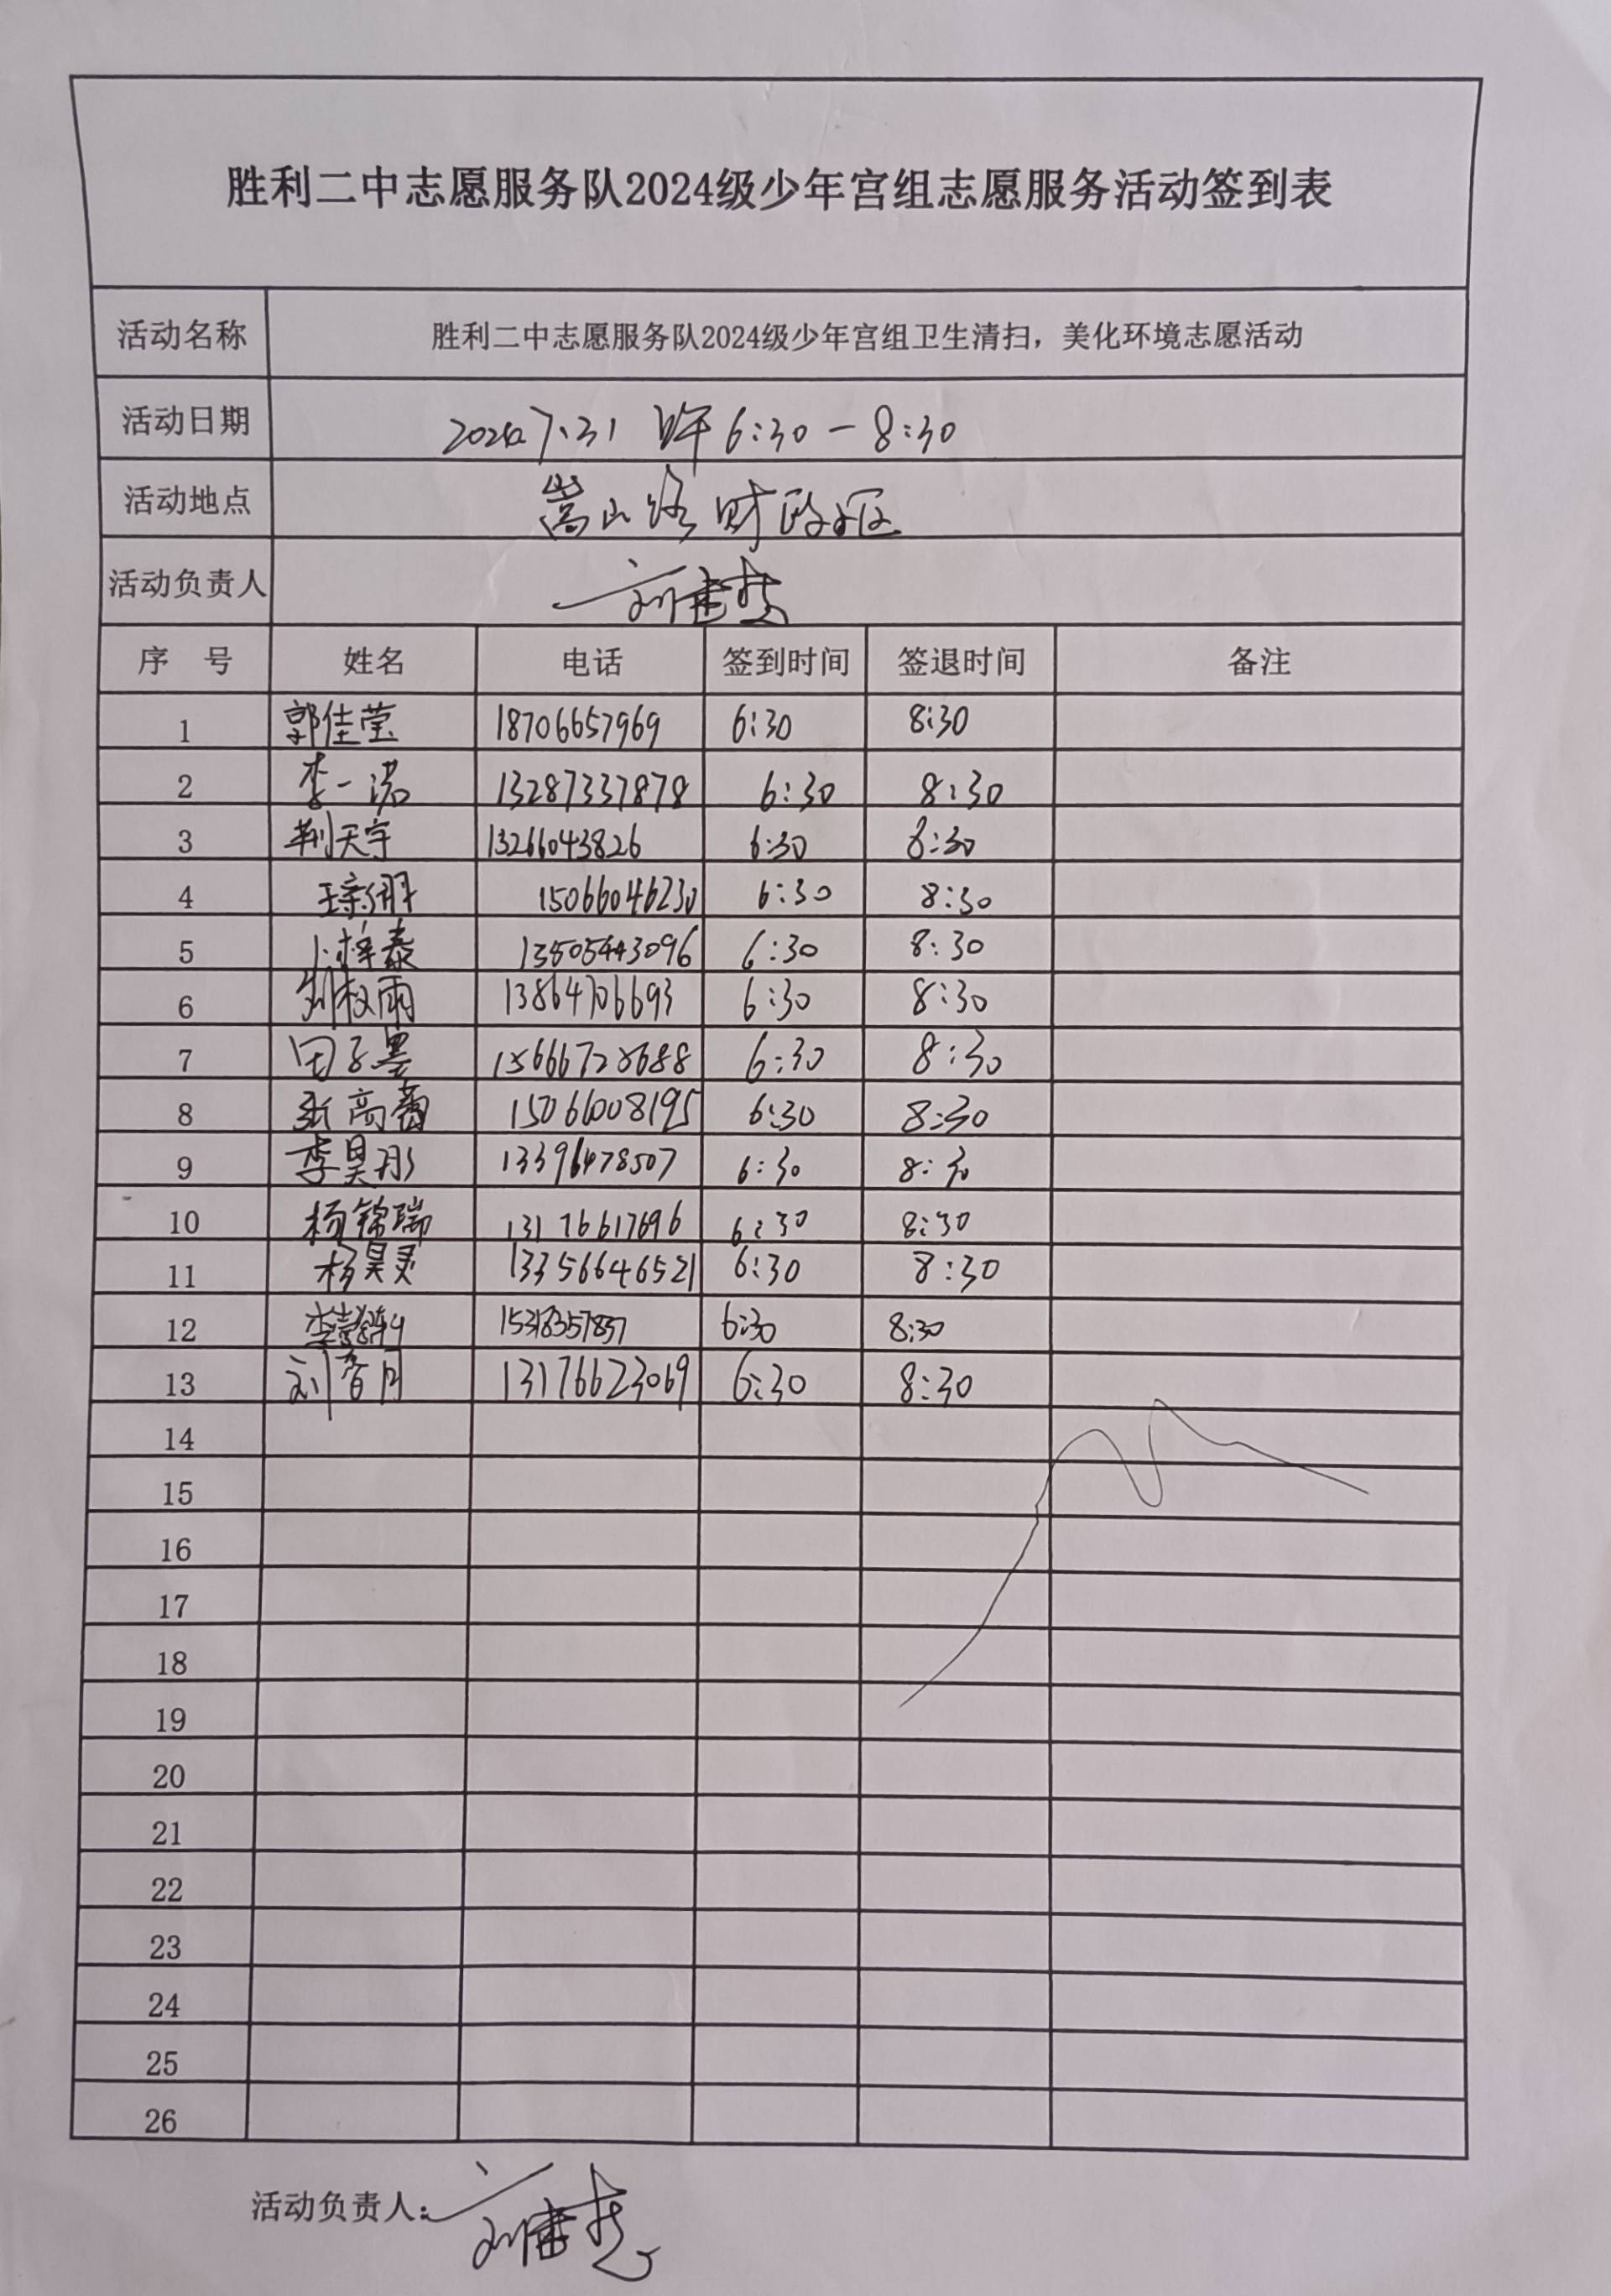 胜利二中志愿服务队2024级少年宫组志愿服务活动签到表
活动名称 胜利二中志愿服务队2024级少年宫组卫生清扫，美化环境志愿活动
活动日期 7.31 6:30-8:30
活动地点 嵩山路财政
活动负责人
序 号 姓名 电话 签到时间 签退时间 备注
1 郭佳莹 18706657969 6:30 8:30
2 李一诺 13287337878 6:30 8:30
3 荆天宇 13266043826 6:30 8:30
4 15066046230 6:30 8:30
5 梓泰 6:30 8:30
6 13864706693 6:30 8:30
7 田子墨 6:30 8:30
8 张高 15066008195 6:30 8:30
9 李昊彤 13396478507 6:30 8:30
10 杨锦瑞 13176617696 6:30 8:30
11 杨昊灵 13356646521 6:30 8:30
12 6:30 8:30
13 13176623069 6:30 8:30
14
15
16
17
18
19
20
21
22
23
24
25
26
活动负责人：